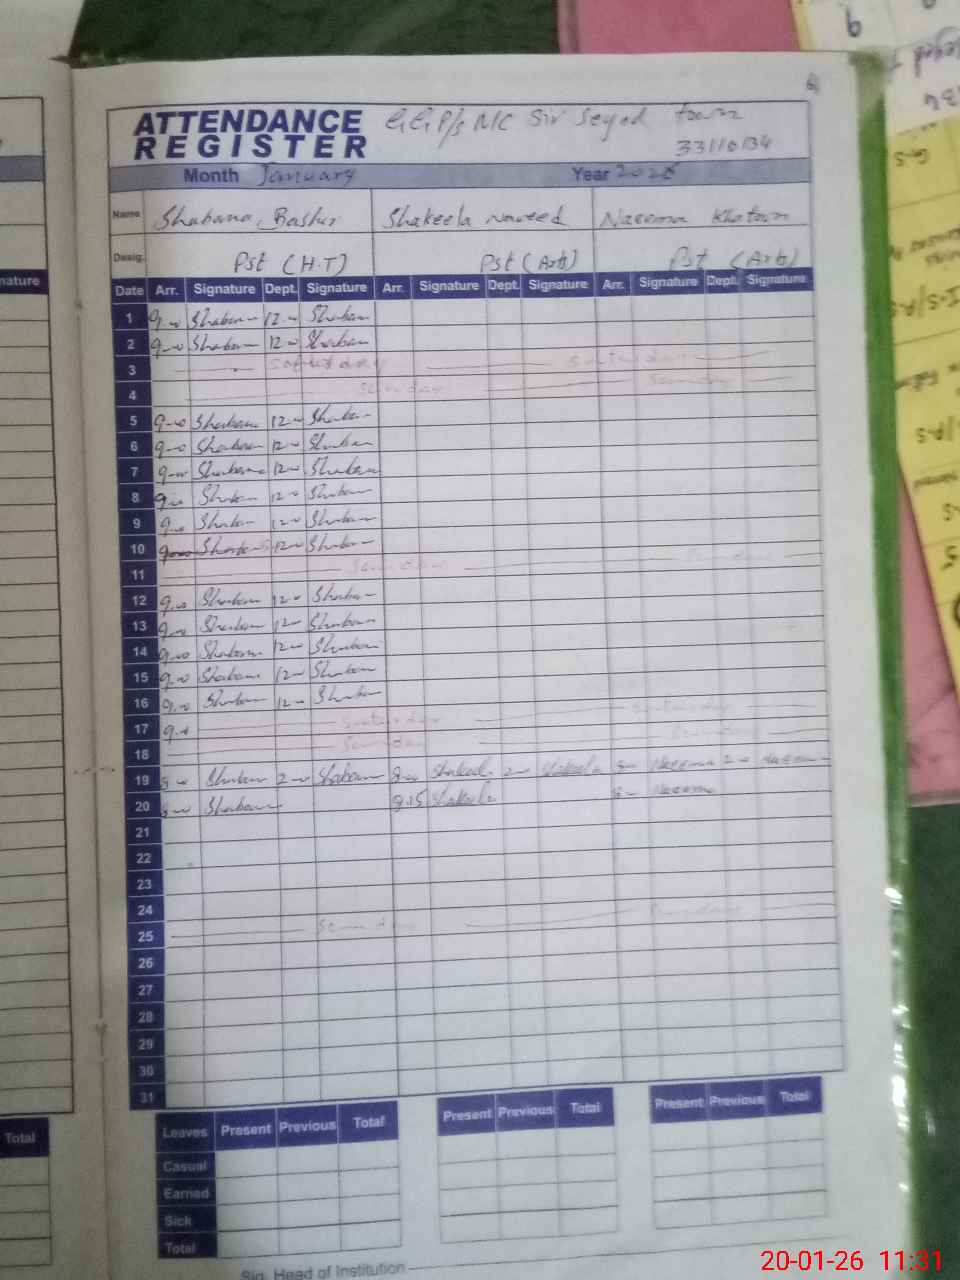 ATTENDANCE REGISTER
G.G.P/s MC Sir Seyed town
33110134
Month January Year
Name Shabana Bashir Shakeela naveed Naeema Khatoon
Desig. Pst (H.T) Pst (Arb) Pst (Arb)
Date Arr. Signature Dept. Signature Arr. Signature Dept. Signature Arr. Signature Dept. Signature
1 9-00 Shaban 12-00 Shaban
2 9-00 Shaban 12-00 Shaban
3 Saturday Saturday
4 Sunday Sunday
5 9-00 Shaban 12-00 Shaban
6 9-00 Shaban 12-00 Shaban
7 9-00 Shabana 12-00 Shaban
8 9-00 Shaban 12-00 Shaban
9 9-00 Shaban 12-00 Shaban
10 Shaban 12-00 Shaban
11 Sunday Sunday
12 9-00 Shaban 12-00 Shaban
13 9-00 Shaban 12-00 Shaban
14 9-00 Shaban 12-00 Shaban
15 9-00 Shaban 12-00 Shaban
16 9-00 Shaban 12-00 Shaban
17 Saturday Saturday
18 Sunday Sunday
19 8-00 Shaban 2-00 Shaban 8-00 Shakeela 2-00 Shakeela 8-00 Naeema 2-00 Naeema
20 8-00 Shaban 8.15 Shakeela 8-00 Naeema
21
22
23
24
25 Sunday Sunday
26
27
28
29
30
31
Leaves Present Previous Total Present Previous Total Present Previous Total
Casual
Earned
Sick
Total
Total
Sig. Head of Institution
20-01-26 11:31